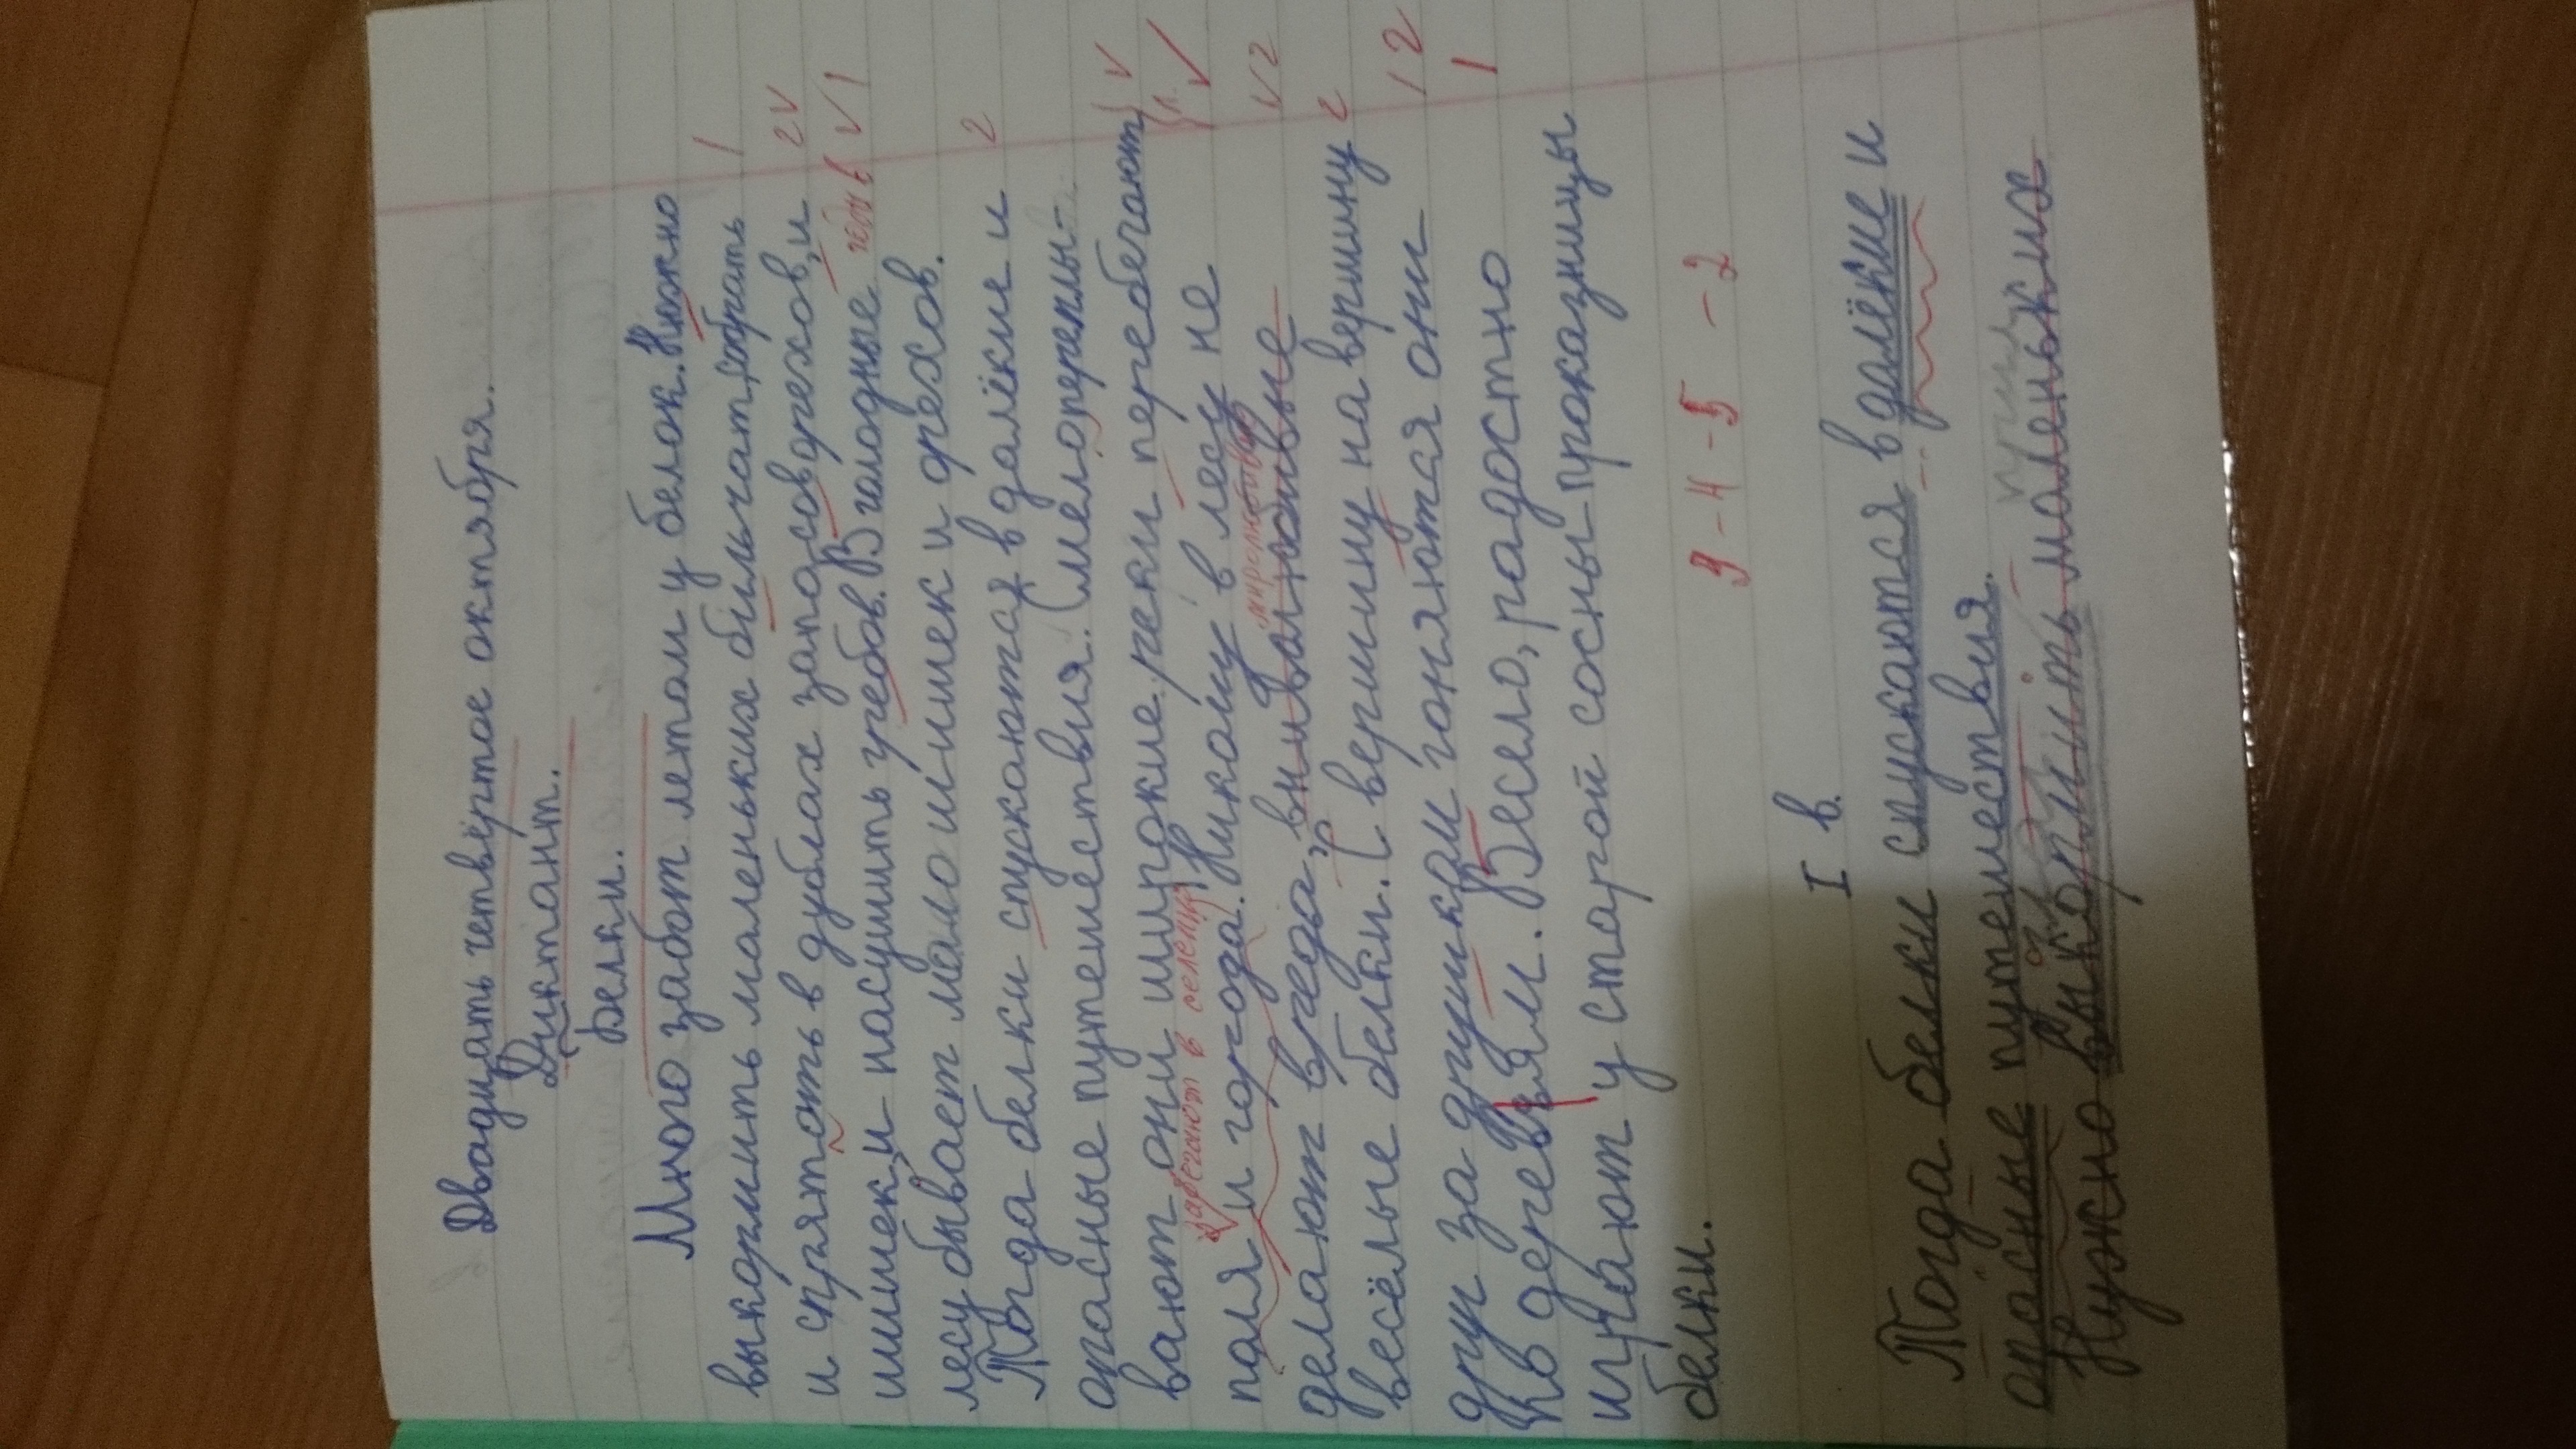 Двадцать четвёртое октября.
Диктант.
Белки.
Много забот летом у белок. Нюжно
выкормить маленьких бильчат, собрать
и спрятать в дублах запасов орехов, и
шишек, и насушить гребов. В голодные годы в
лесу бывает мало шишек и орехов.
Тогда белки спускаются в далёкие и
опасные путешествия. Смело переплы-
вают они широкие реки перебегают
поля и города. Никому в лесу не
забегают в селения
делают вреда, миролюбивые
весёлые белки. С вершину на вершину
друг за друшкой гоняются они
по деревьям. Весело, радостно
играют у старой сосны проказницы
белки.
9 - 4 - 5 - 2
I в.
Тогда белки спускаются в далёкие и
опасные путешествия.
Нужно выкормить маленьких